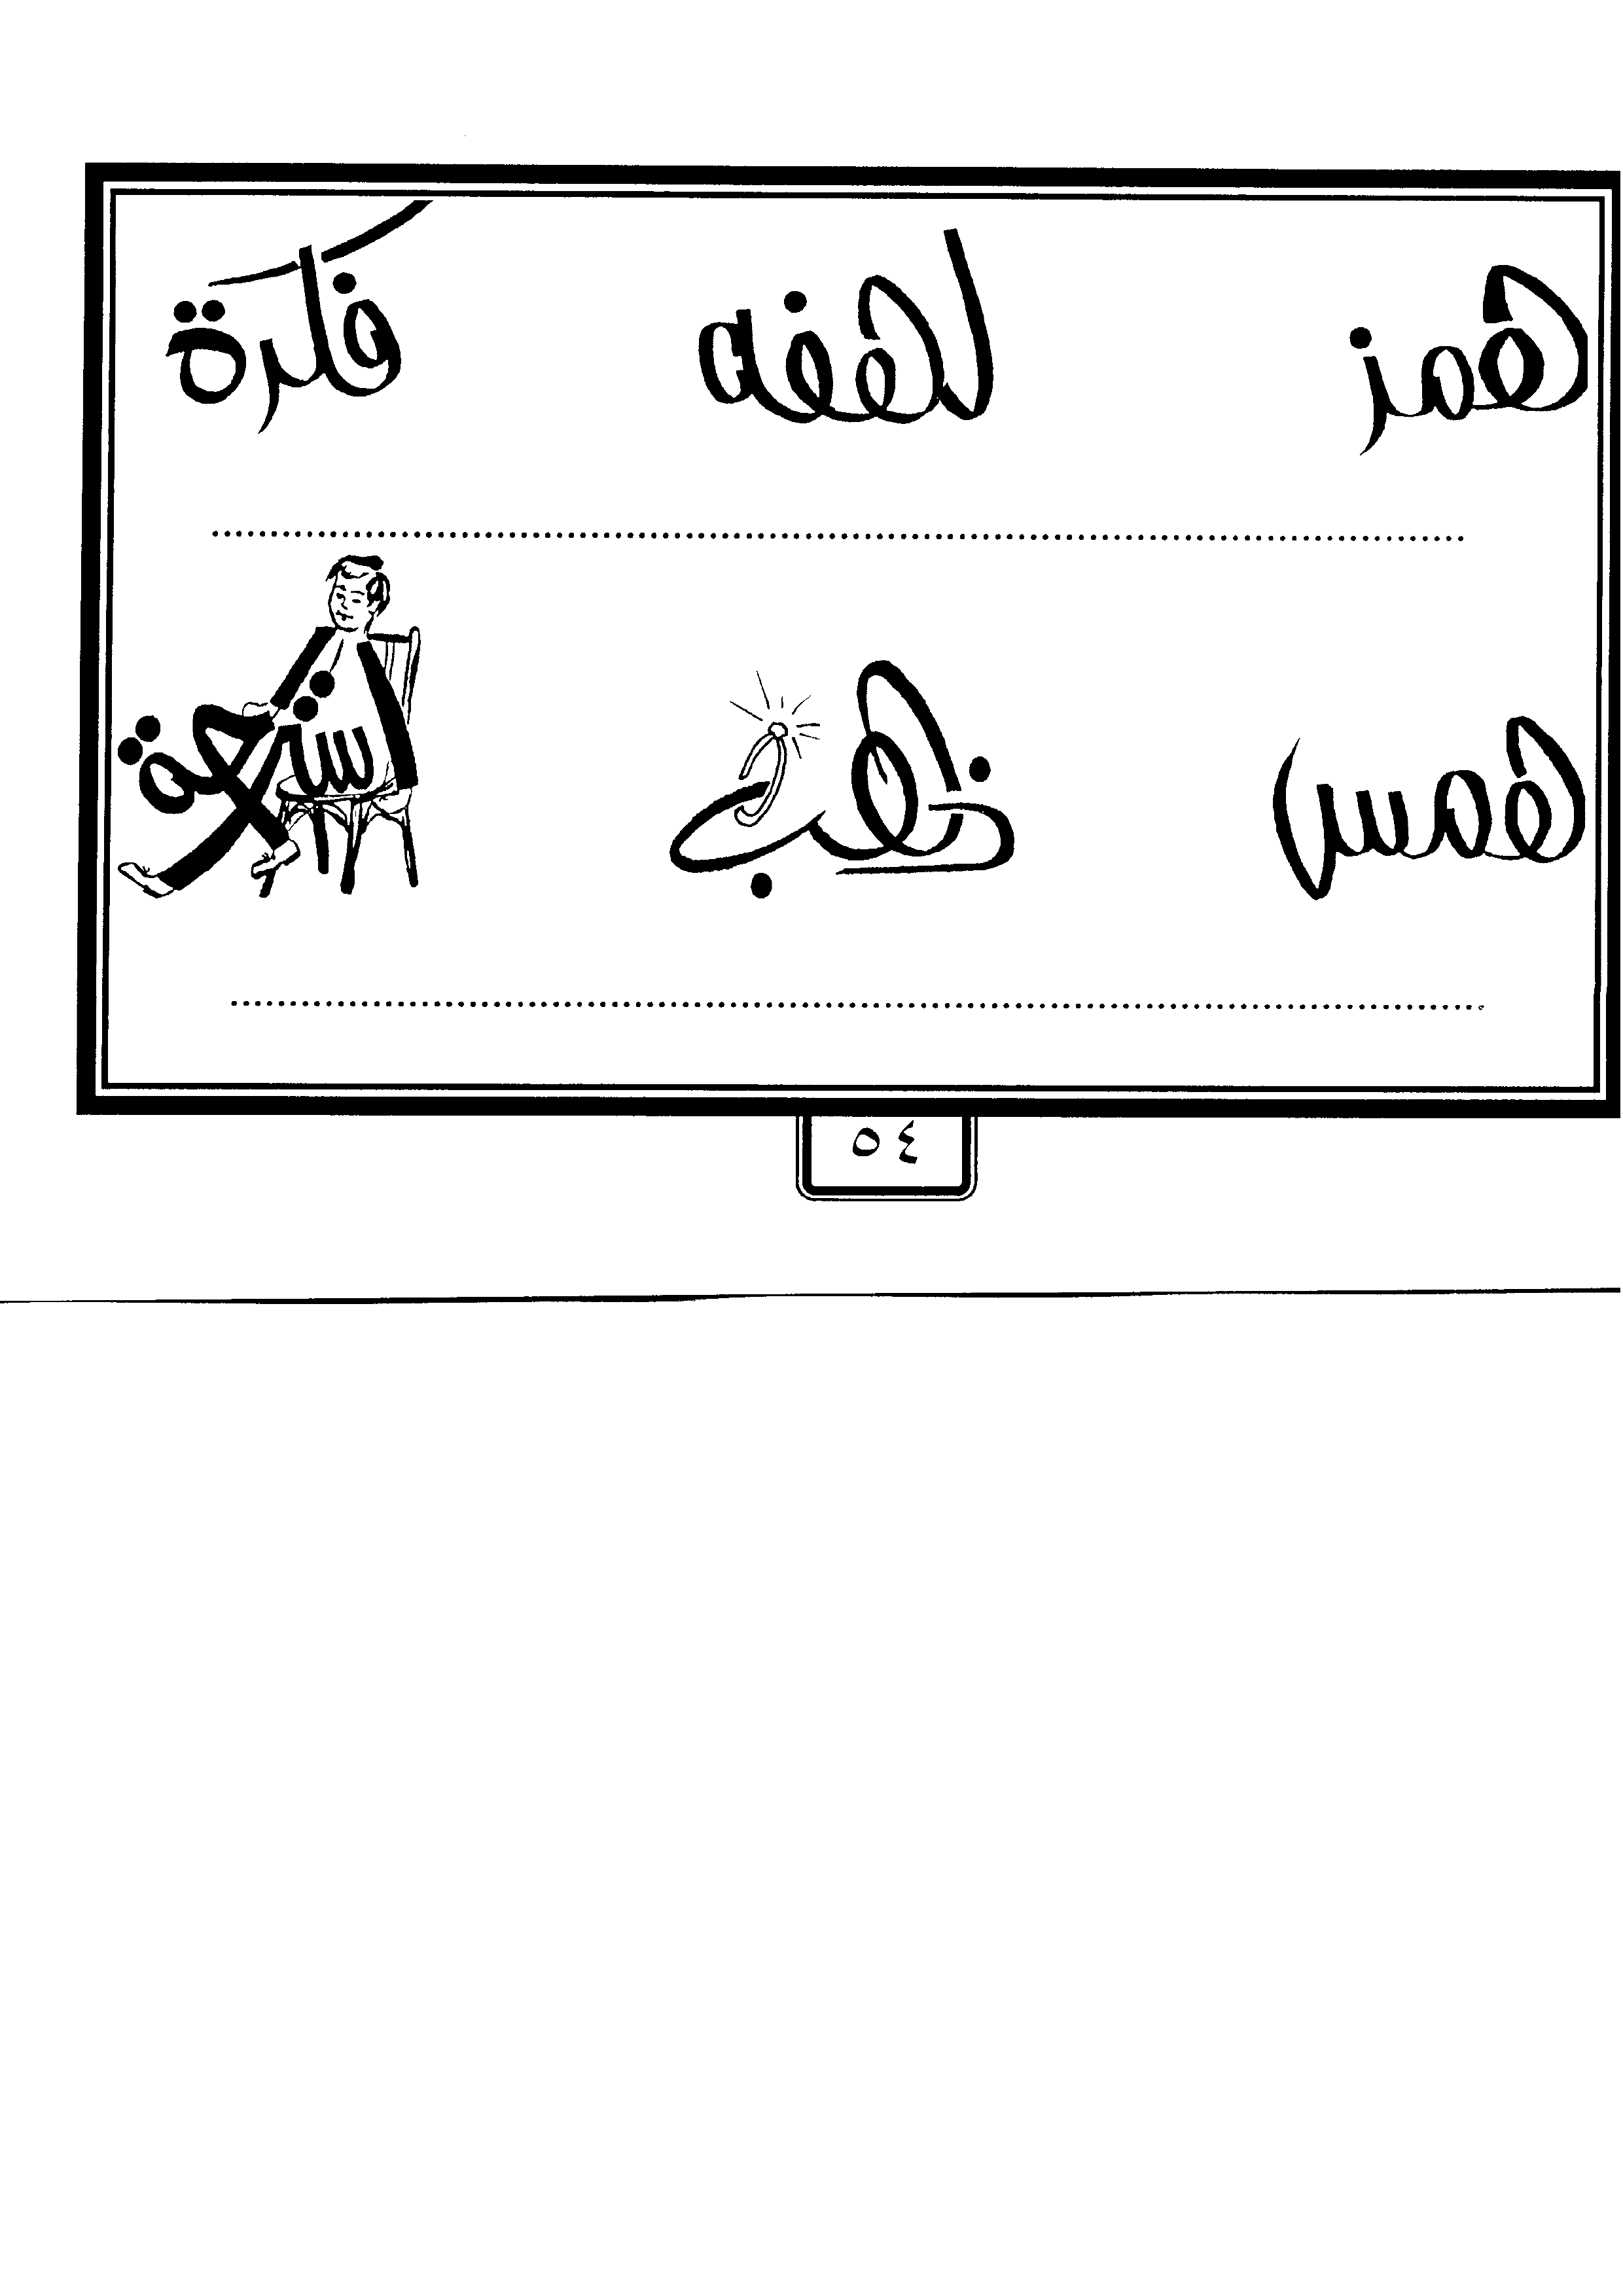 همز لهفه فكرة
همس ذهب استراحة
٥٤